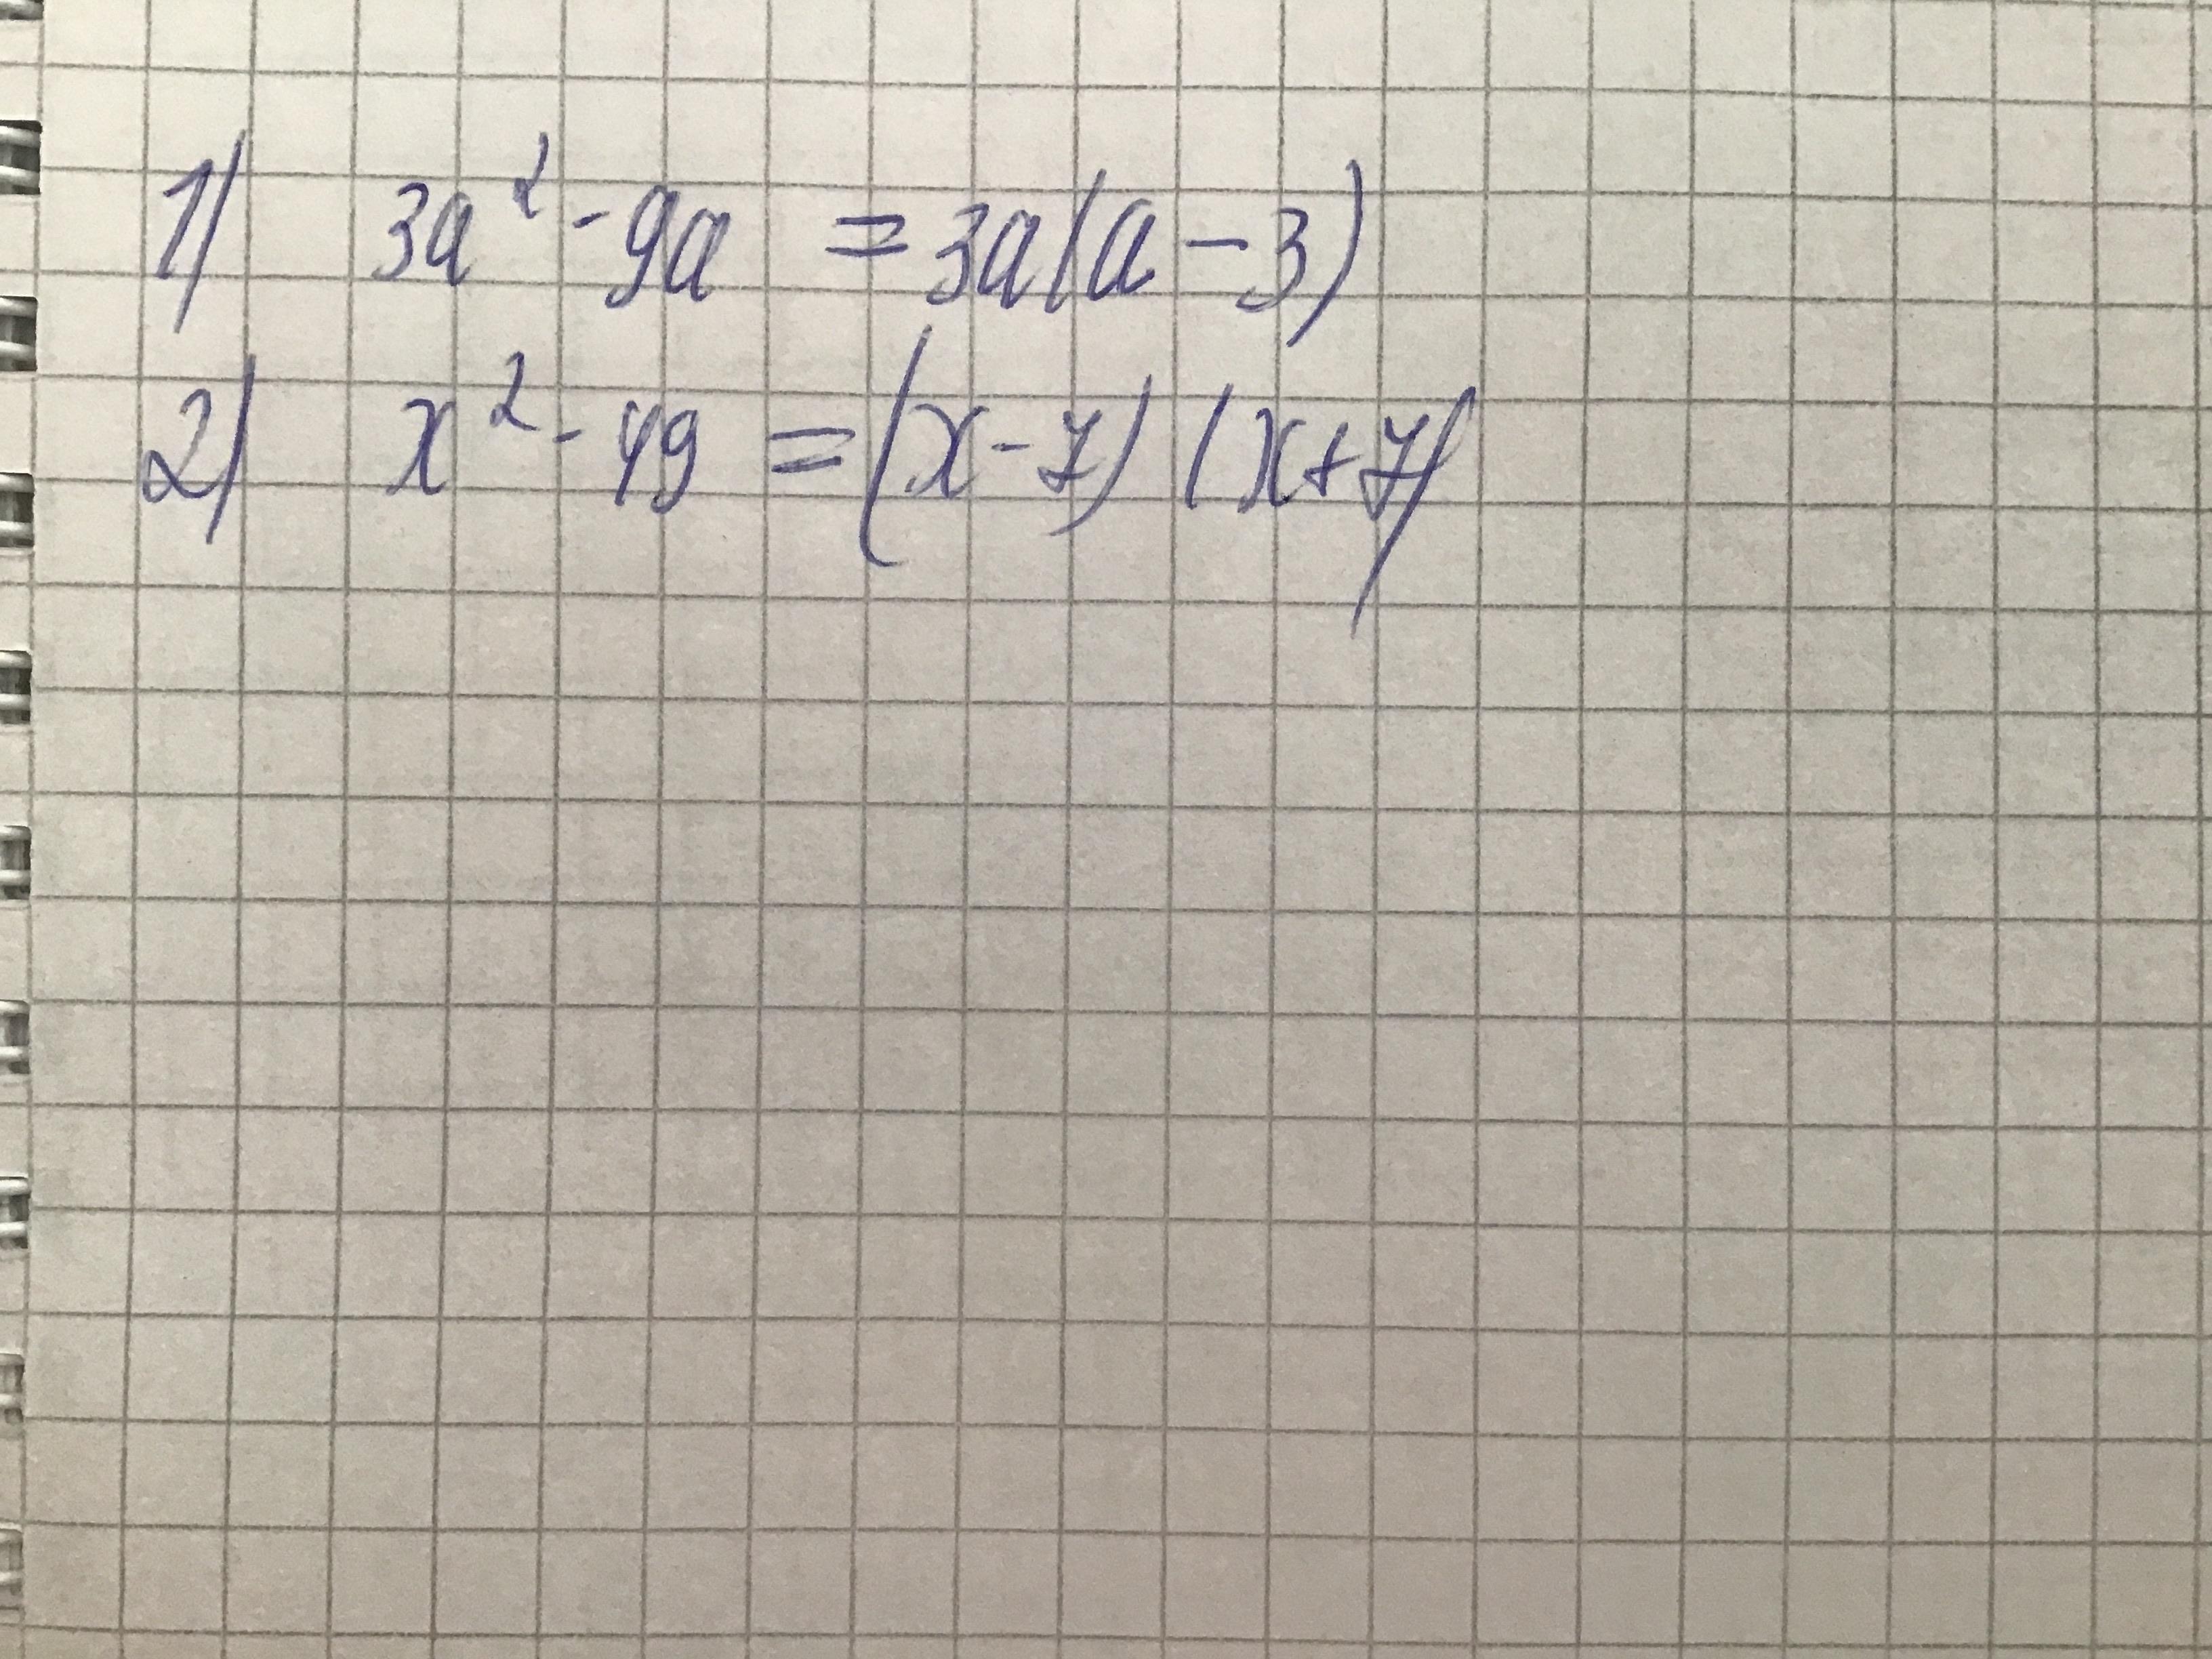 1) 3a² - 9a = 3a(a - 3)
2) x² - 49 = (x - 7) (x + 7)